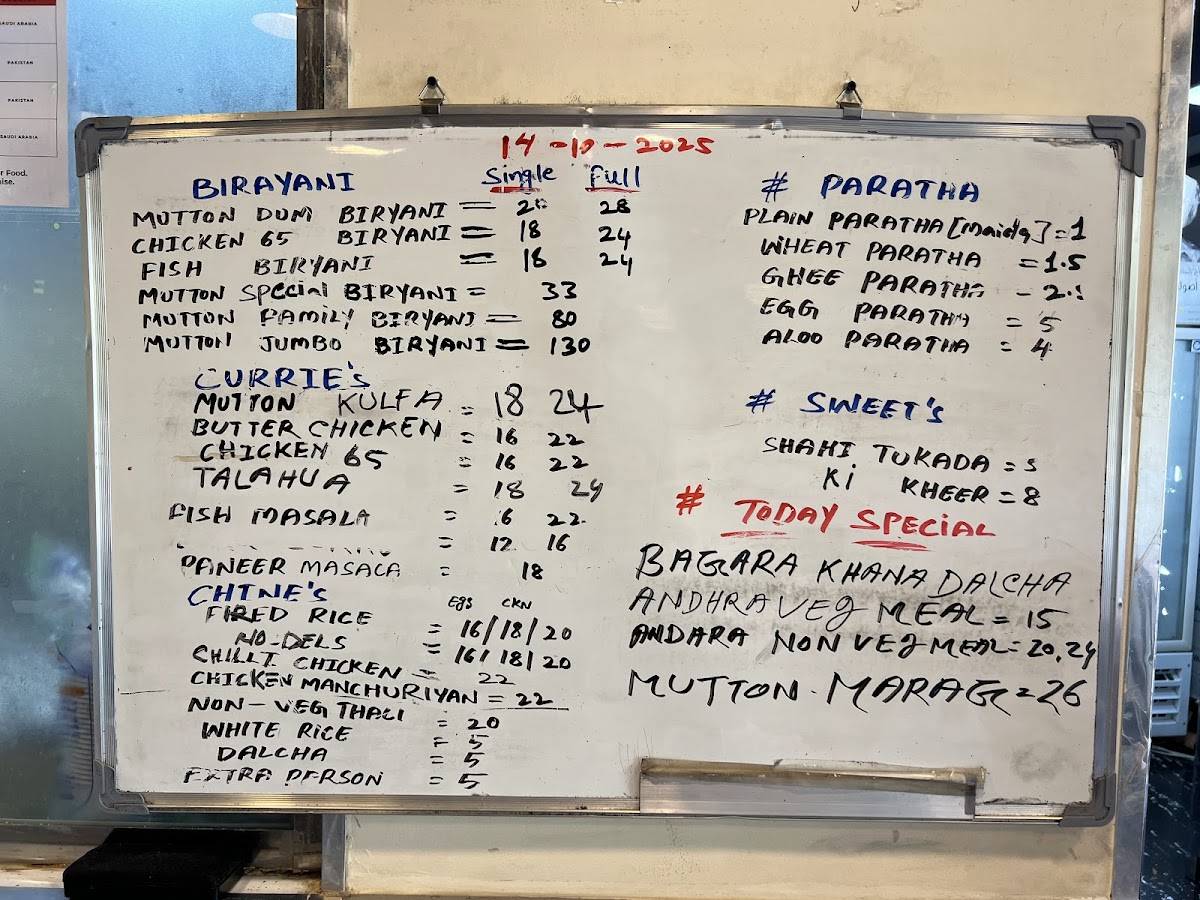 SAUDI ARABIA
PAKISTAN
PAKISTAN
SAUDI ARABIA
r Food.
ise.
14-10-2025
BIRAYANI Single Full
MUTTON DUM BIRYANI = 28
CHICKEN 65 BIRYANI = 18 24
FISH BIRYANI = 18 24
MUTTON SPECIAL BIRYANI = 33
MUTTON FAMILY BIRYANI = 80
MUTTON JUMBO BIRYANI = 130
CURRIE'S
MUTTON KULFA = 18 24
BUTTER CHICKEN = 16 22
CHICKEN 65 = 16 22
TALAHUA = 18 24
FISH MASALA = 16 22
= 12 16
PANEER MASALA = 18
CHINE'S EGS CKN
FIRED RICE = 16/18/20
NO-DELS = 16/18/20
CHILLI CHICKEN = 22
CHICKEN MANCHURIYAN = 22
NON-VEG THALI = 20
WHITE RICE = 5
DALCHA = 5
EXTRA PERSON = 5
# PARATHA
PLAIN PARATHA [Maida] = 1
WHEAT PARATHA = 1.5
GHEE PARATHA -
EGG PARATHA = 5
ALOO PARATHA = 4
# SWEET'S
SHAHI TUKADA = 5
Ki KHEER = 8
# TODAY SPECIAL
BAGARA KHANA DALCHA
ANDHRA VEG MEAL = 15
ANDARA NON VEG MEAL = 20,24
MUTTON. MARAG = 26